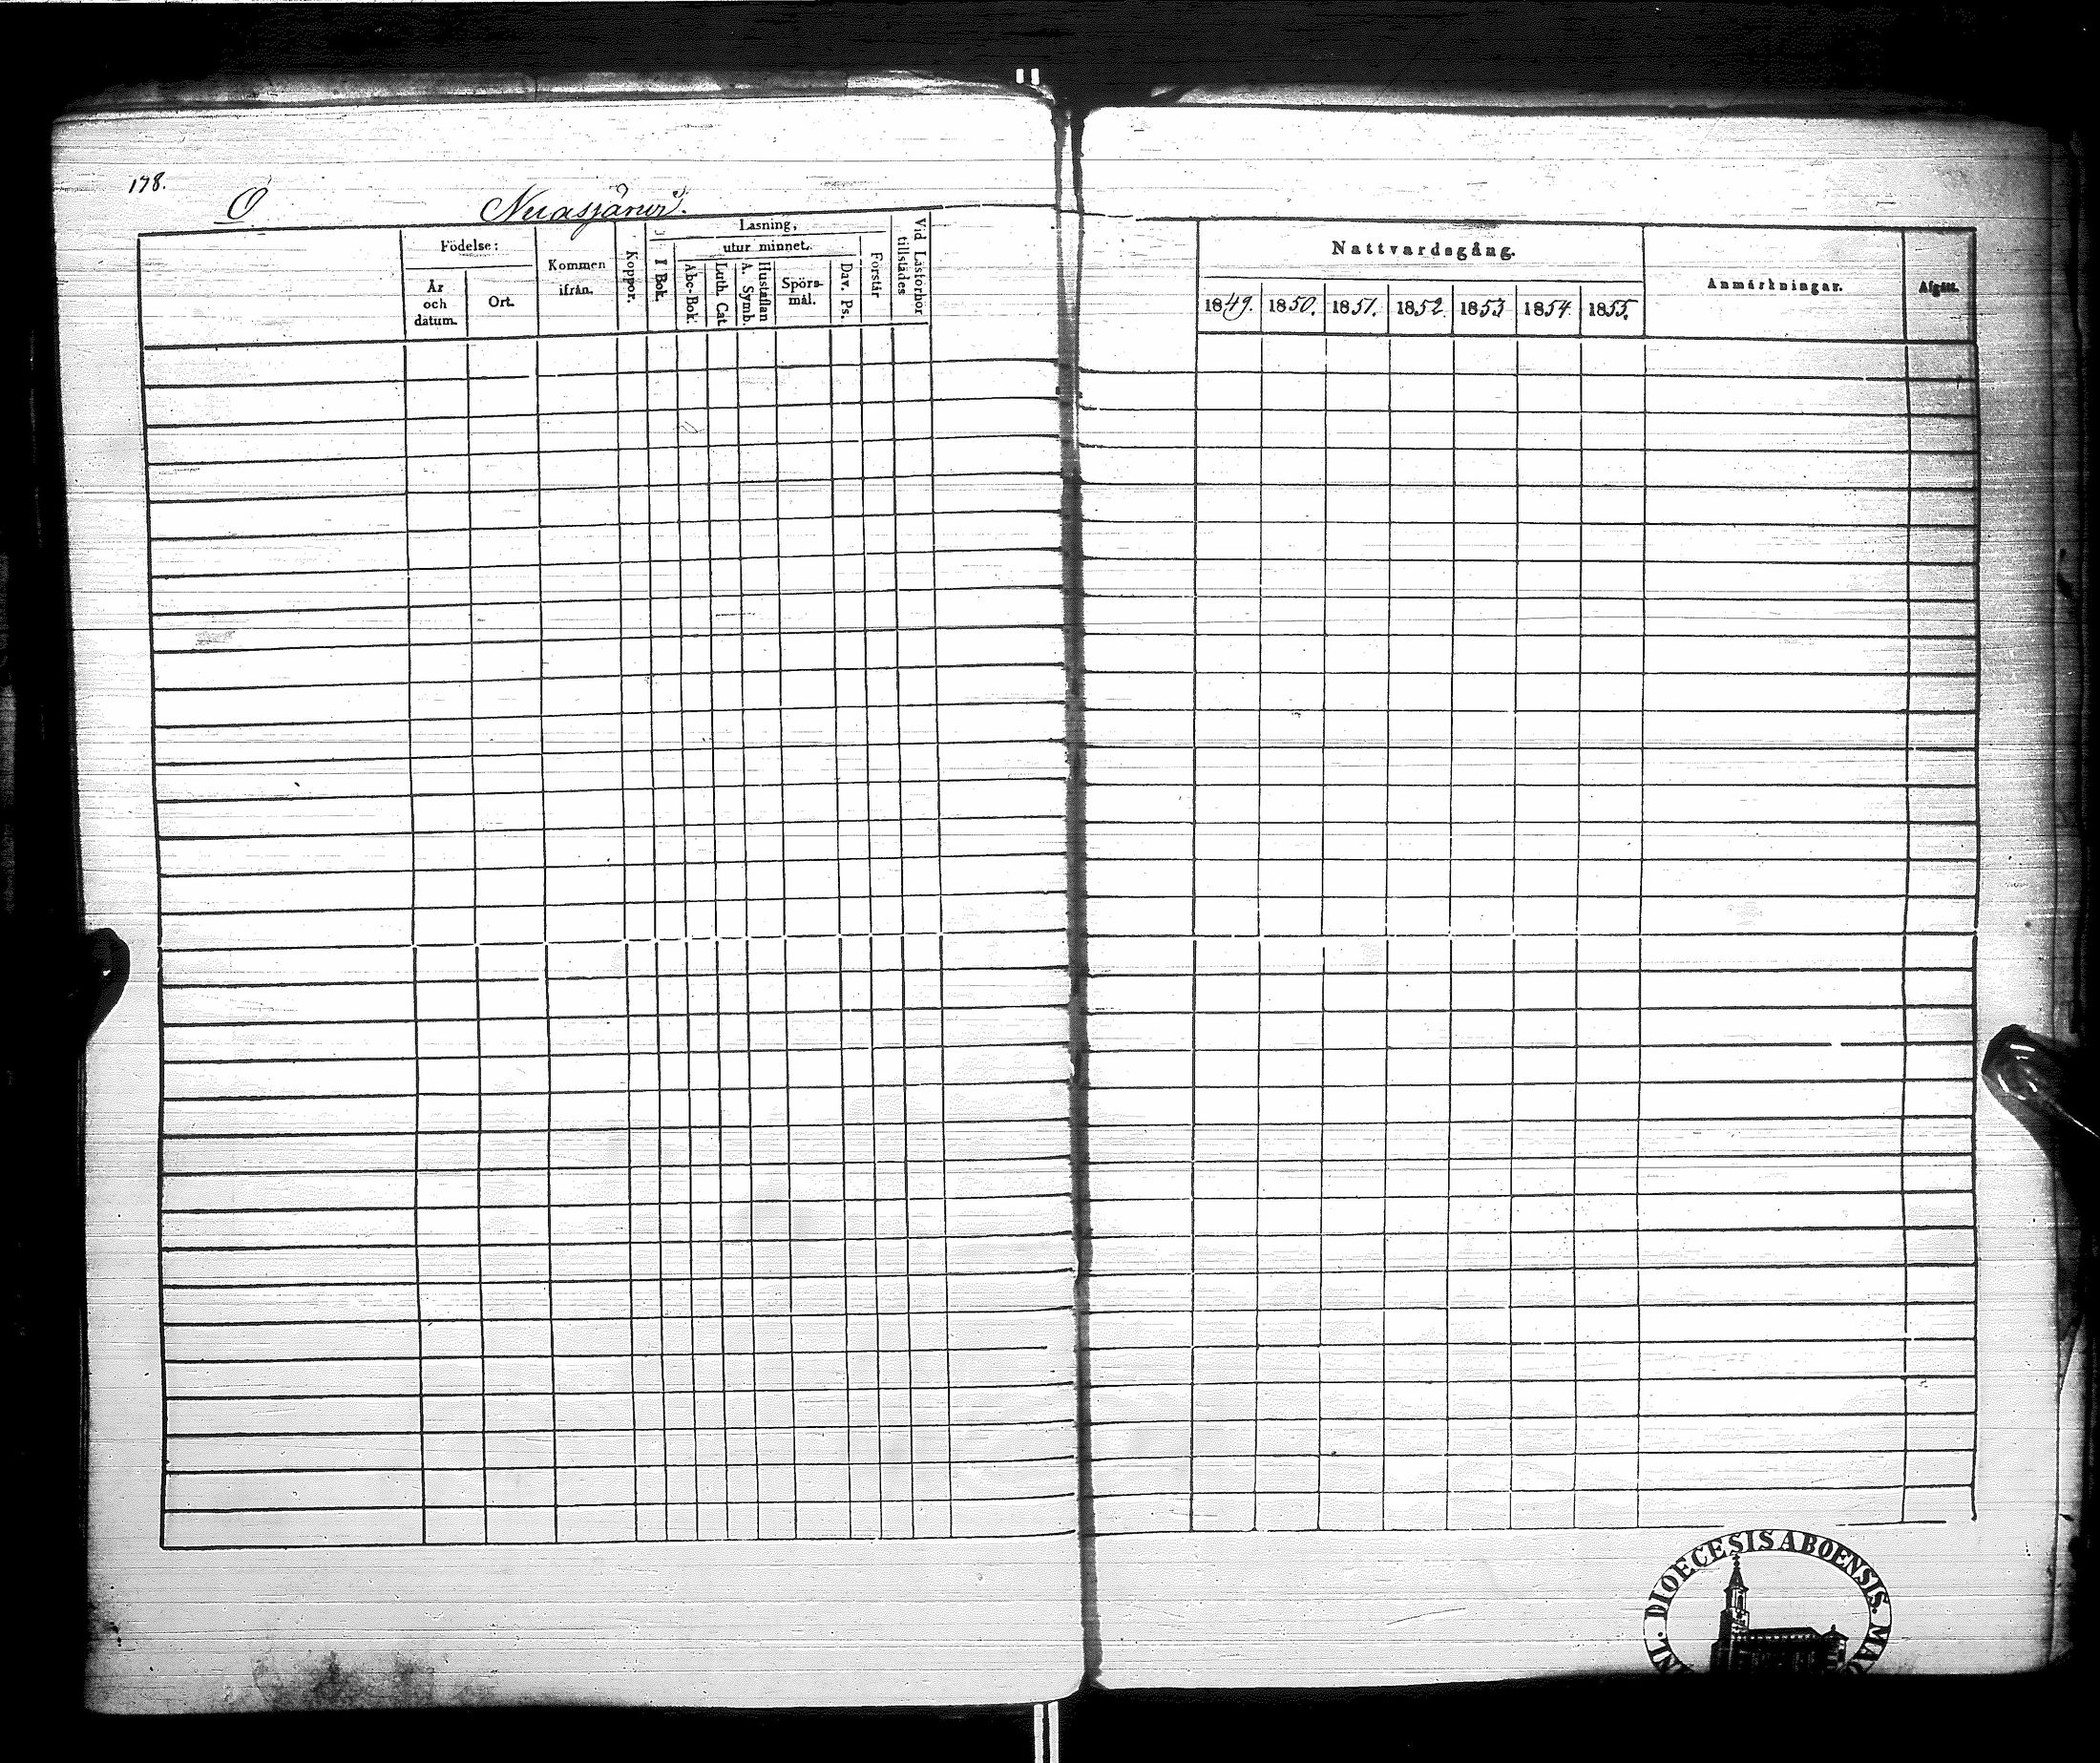 178.
O Nuasjärvi.
Födelse:
År och datum.
Ort.
Kommen ifrån.
Koppor.
Läsning,
I Bok.
utur minnet.
Abc-Bok.
Luth. Cat.
Hustaflan A. Symb.
Spörs-mål.
Dav. Ps.
Förstår
Vid Läsförhör tillstädes
Nattvardsgång.
1849. 1850. 1851. 1852. 1853 1854 1855.
Anmärkningar.
Afgått.
DIOECESIS ABOENSIS.